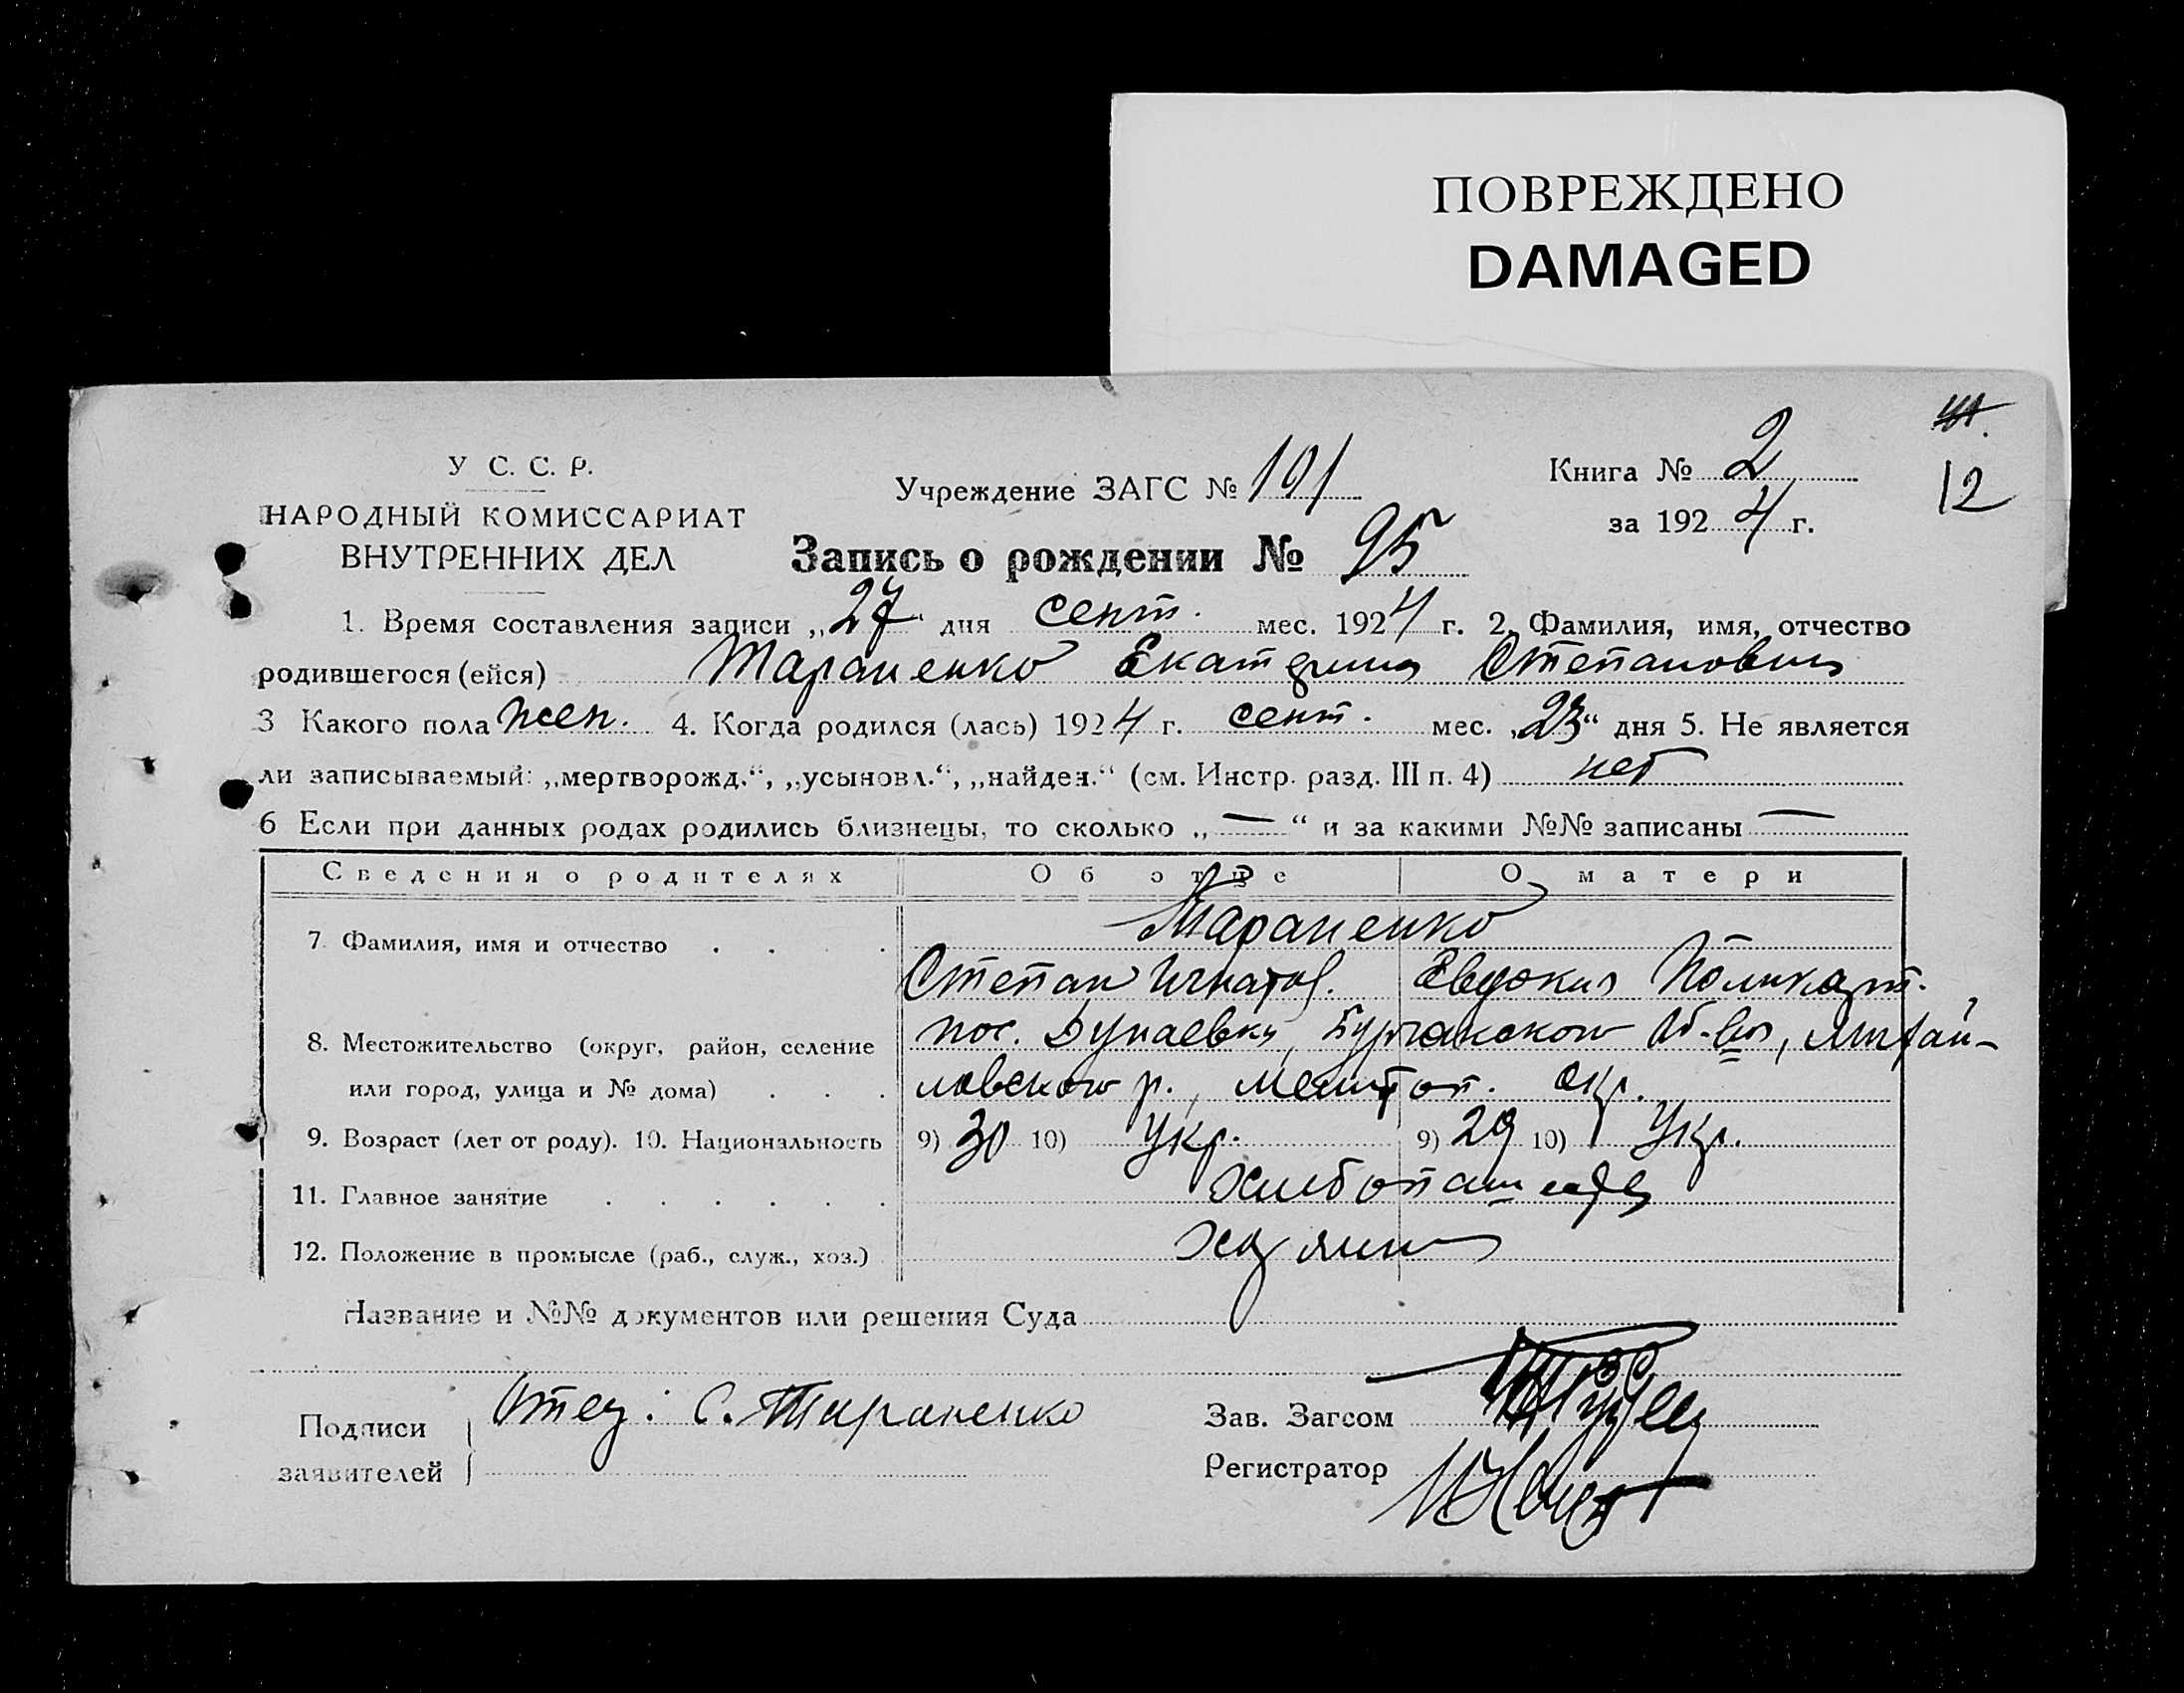 ПОВРЕЖДЕНО
DAMAGED
12
У С. С. Р.
НАРОДНЫЙ КОМИССАРИАТ
ВНУТРЕННИХ ДЕЛ
Учреждение ЗАГС № 101
Книга № 2
за 1924 г.
Запись о рождении № 95
1. Время составления записи „27“ дня сент. мес. 1924 г. 2. Фамилия, имя, отчество
родившегося (ейся) Тараненко Екатерина Степановна
3 Какого пола жен. 4. Когда родился (лась) 1924 г. сент. мес. „23“ дня 5. Не является
ли записываемый: „мертворожд.“, „усыновл.“, „найден.“ (см. Инстр. разд. III п. 4) нет
6 Если при данных родах родились близнецы, то сколько „—“ и за какими №№ записаны —
Сведения о родителях Об отце О матери
7. Фамилия, имя и отчество . . . . Тараненко
Степан Игнатов. Евдокия Поликарп.
8. Местожительство (округ, район, селение пос. Дунаевка, с-ва, Михай-
или город, улица и № дома) . . . ловского р., Мелитоп. окр.
9. Возраст (лет от роду). 10. Национальность 9) 30 10) Укр. 9) 29 10) Укр.
11. Главное занятие . . . . . . Хлебопашество
12. Положение в промысле (раб., служ., хоз.) Хозяин
Название и №№ документов или решения Суда
Подписи заявителей Отец: С. Тараненко
Зав. Загсом
Регистратор